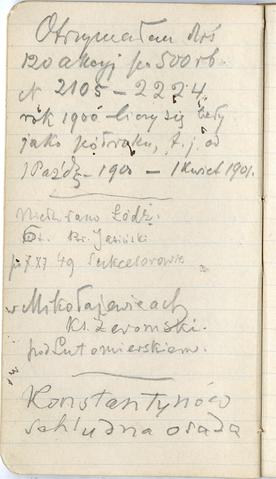 Otrzymałem dziś
120 akcyj po 500 rb.
N 2105 – 2224
rok 1900 – liczy się cały
jako półroku, t. j. od
1 Paźdz. 1900 – 1 Kwiet 1901.
Łódź.
Ks. Jasiński
49 Sukcesorowie
w Mikołajewicach
Ks. Żeromski.
pod Lutomierskiem.
Konstantynów
schludna osada